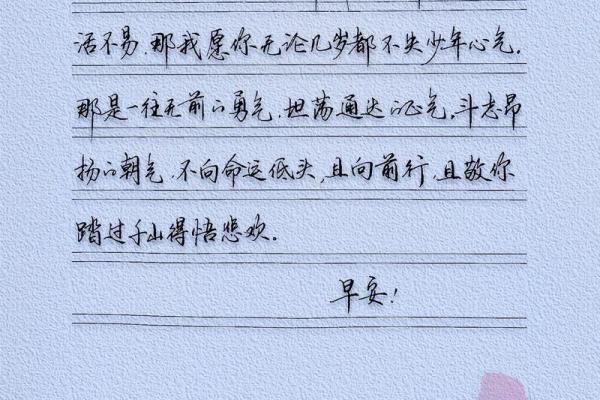 活不易，那我愿你无论几岁都不失少年心气。
那是一往无前的勇气，坦荡通达的正气，斗志昂
扬的朝气，不向命运低头，且向前行，且敬你
踏过千山得悟悲欢。
早安！